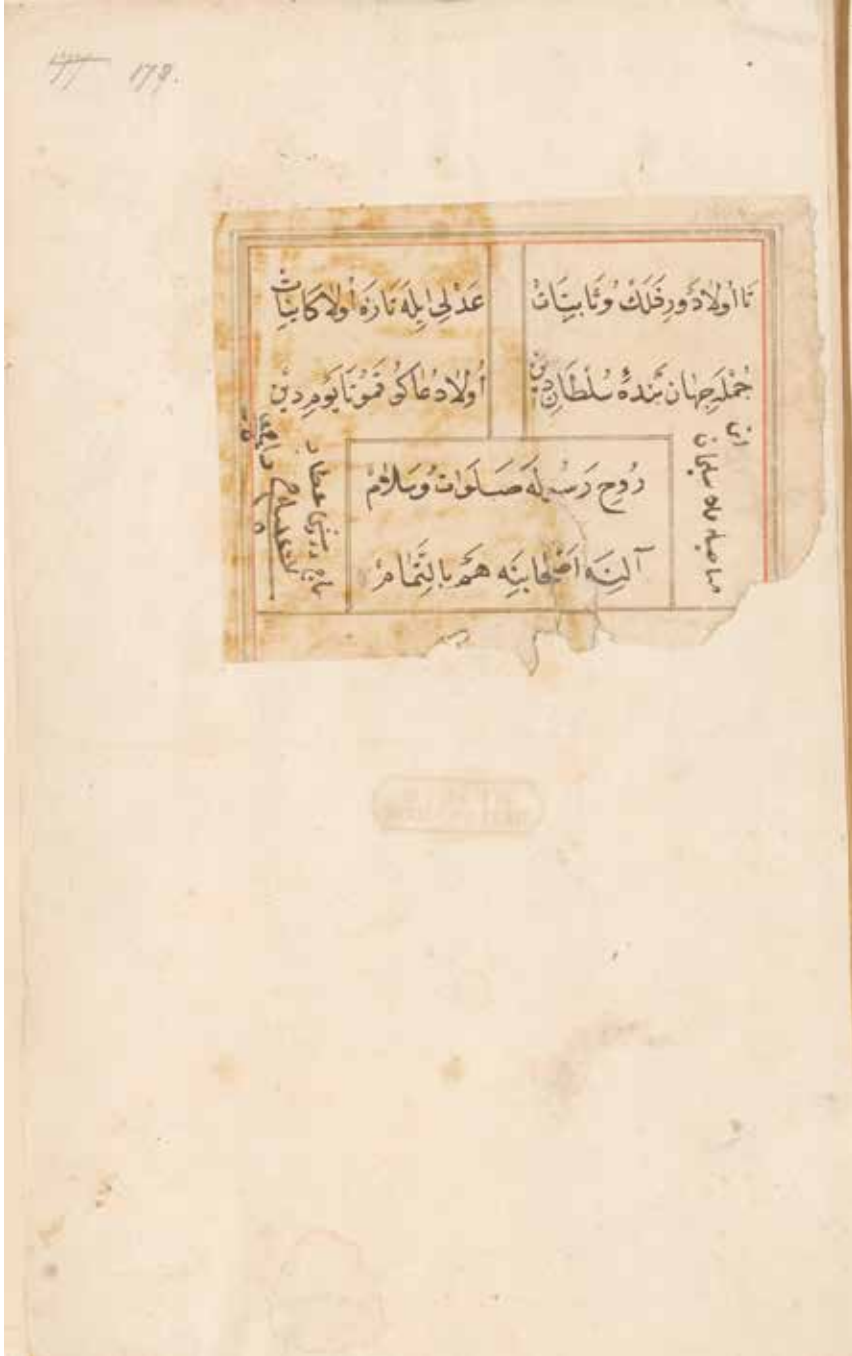 177 178.
تا اولا دَورِ فَلَكْ وُ ثَابِتَاتْ
عَدْلِی اِیلَه تَازَه اُولا كَایِنَاتْ
جُمْلَه جِهَان بَندَهٔ سُلْطَانِ دِینْ
اُولا دُعَا كُو قَمُو تَا یَوْمِ دِینْ
رُوحِ رَسُولَه صَلَوَاتْ وُ سَلاَمْ
آلِنَه اَصْحَابِنَه هَمْ بِالتَّمَامْ
صاحبه ملا سلیمان